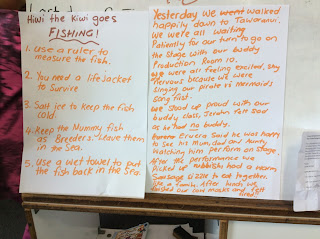 Hiwi the Kiwi goes
FISHING!
1. Use a ruler to
measure the fish.
2. You need a lifejacket
to survive
3. Salt ice to keep the fish
cold.
4. Keep the Mummy fish
as Breeders. Leave them
in the Sea.
5. Use a wet towel to put
the fish back in the Sea.
Yesterday we went walked
happily down to Tawaranui.
We were all waiting
Patiently for our turn to go on
the Stage with our buddy
Production Room 10.
We were all feeling excited, shy
nervous because we were
singing our pirate vs mermaids
song first.
We stood up proud with our
buddy class, felt sad
as he had no buddy.
said he was happy
to see his Mum, dad and Aunty
watching him perform on stage.
After the performance we
Picked up rubbish had a warm
Sausage sizzle to eat together
like a family. After lunch we
our masks and felt
tired!!